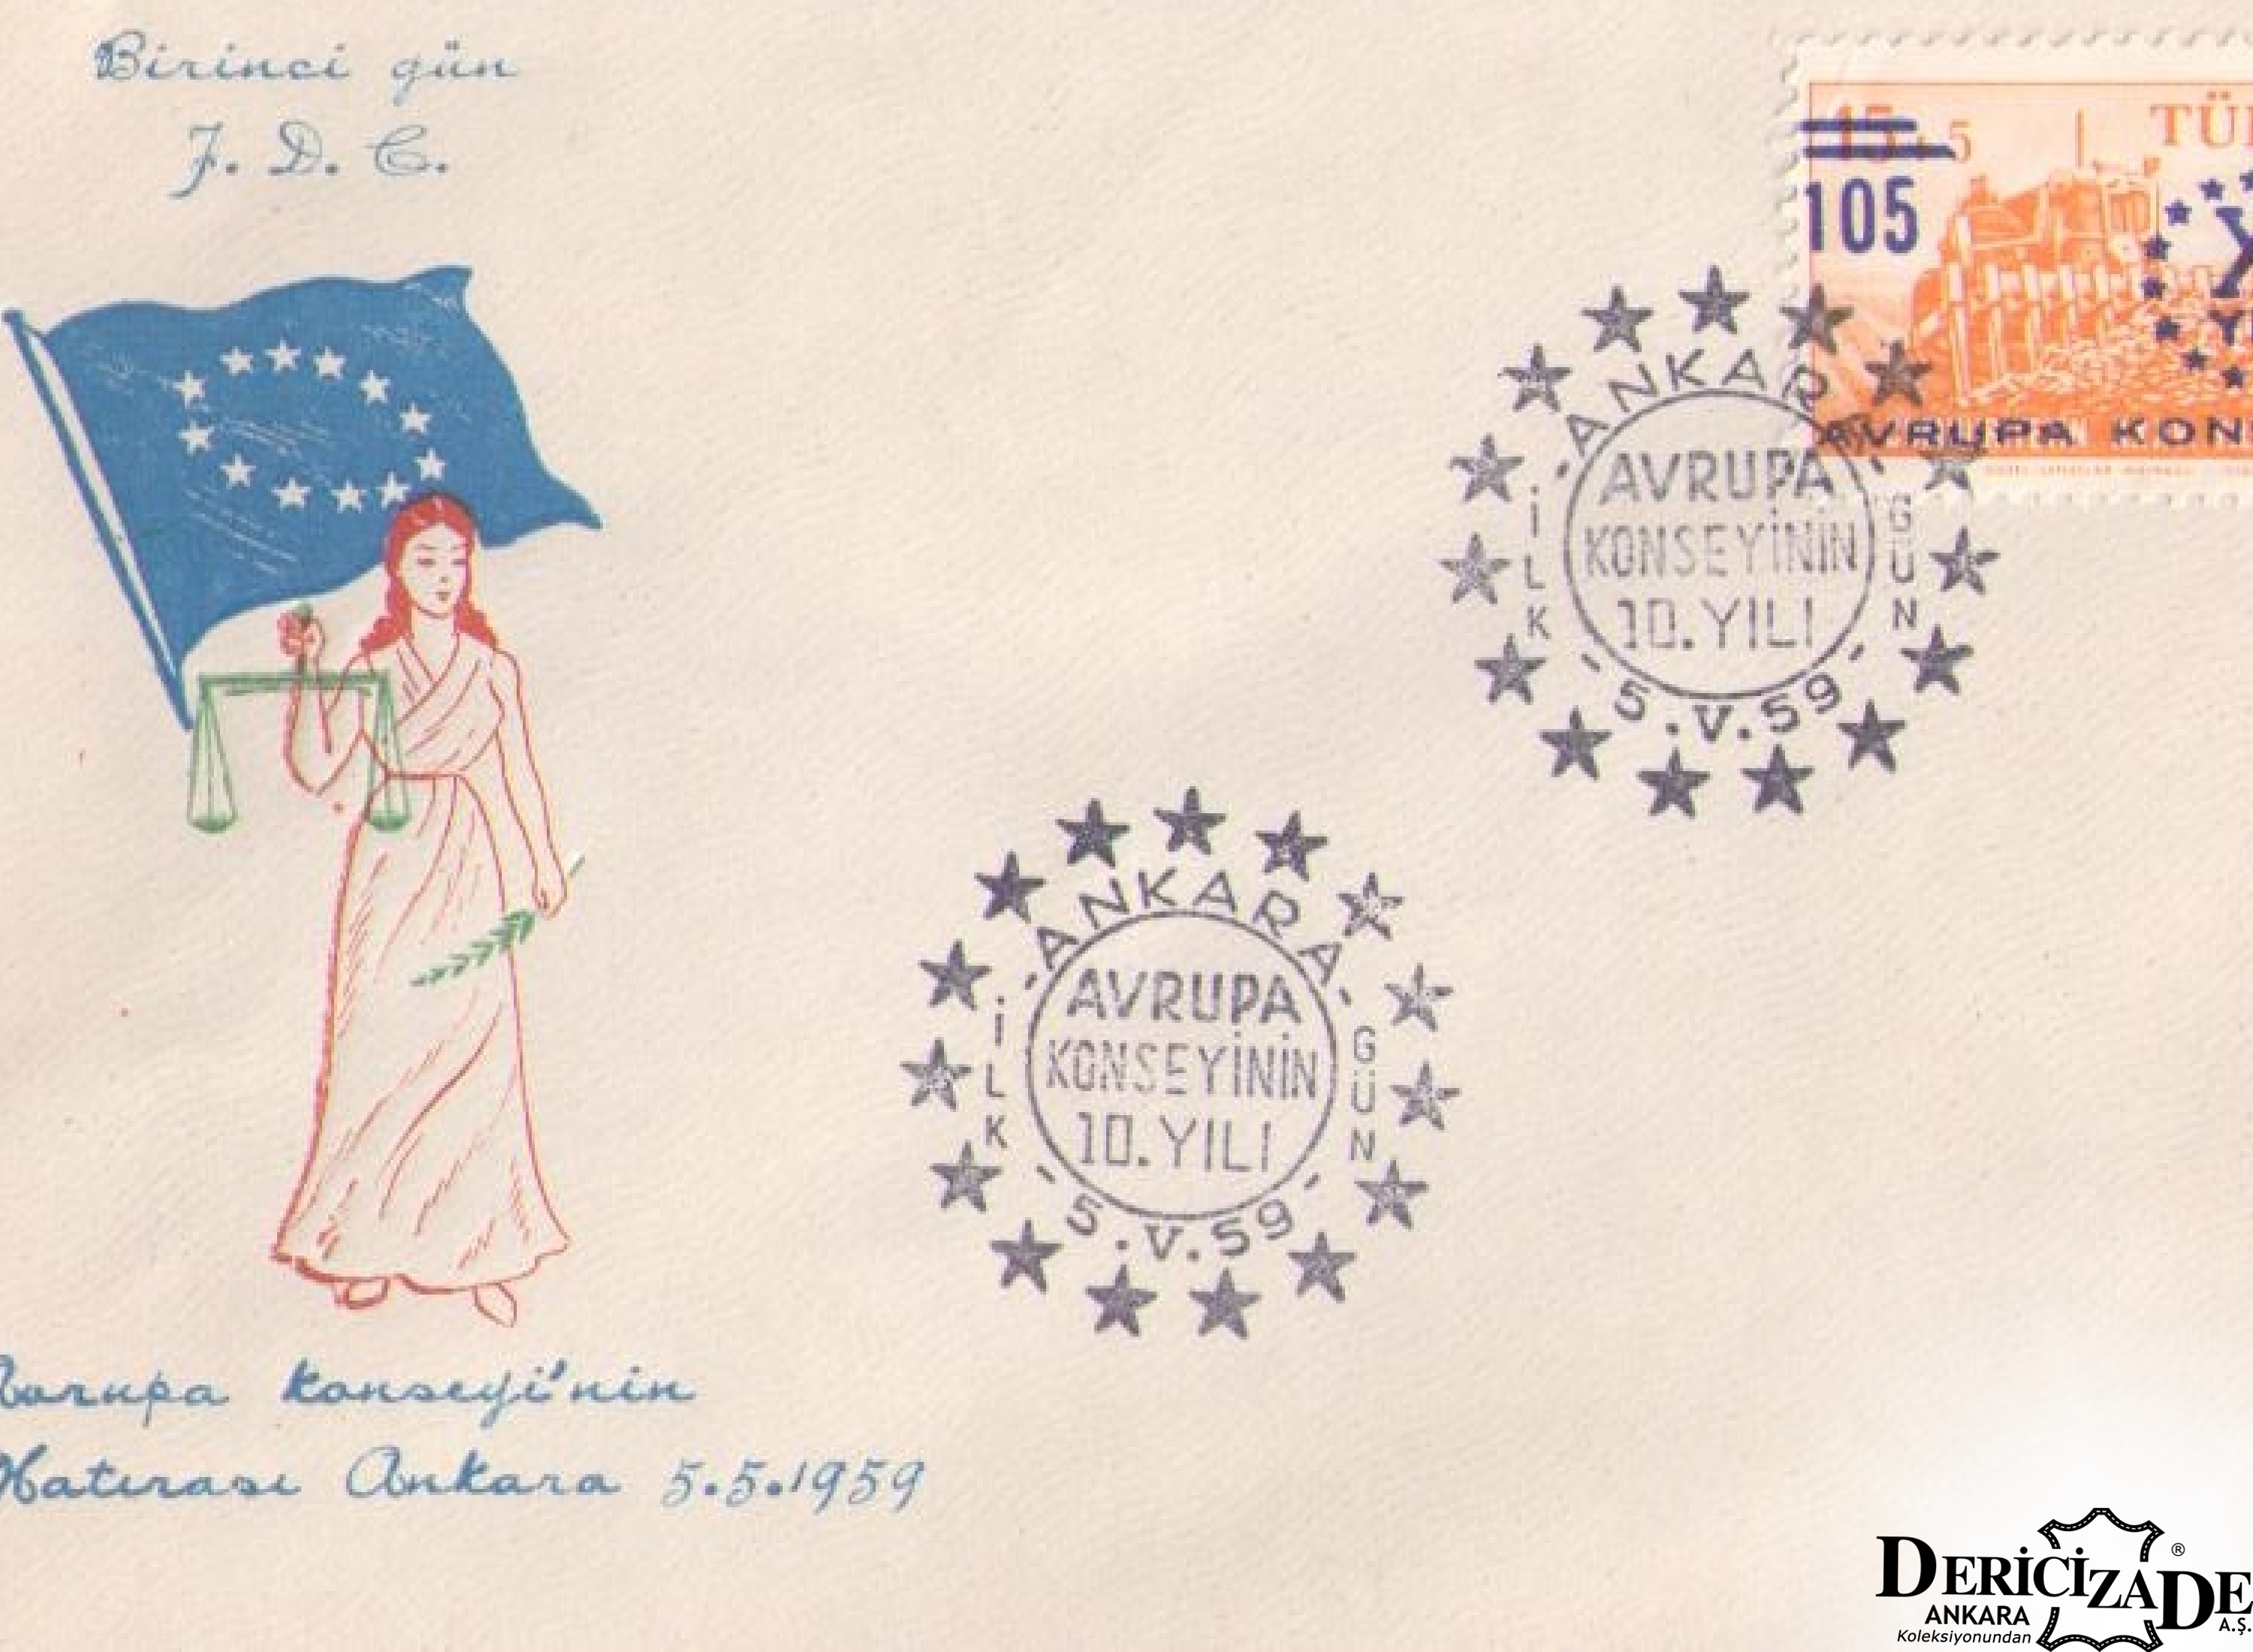 Birinci gün
F. D. C.
15+5
TÜ
105
X
AVRUPA KON
ANKARA
İLK
GÜN
AVRUPA
KONSEYİNİN
10.YILI
5.V.59
ANKARA
İLK
GÜN
AVRUPA
KONSEYİNİN
10.YILI
5.V.59
Avrupa Konseyi'nin
Hatırası Ankara 5.5.1959
DERİCİZADE
®
ANKARA
A.Ş.
Koleksiyonundan